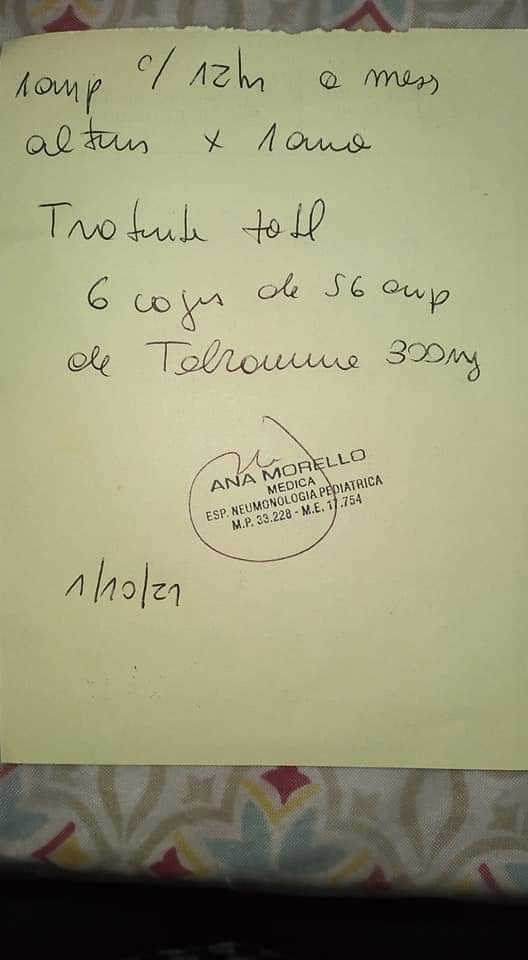 1 amp c/ 12hs a meses
alternos x 1 año
Tratamiento total
6 cajas de 56 amp
de Tobramicina 300mg
ANA MORELLO
MEDICA
ESP. NEUMONOLOGIA PEDIATRICA
M.P. 33.228 - M.E. 17.754
1/10/21